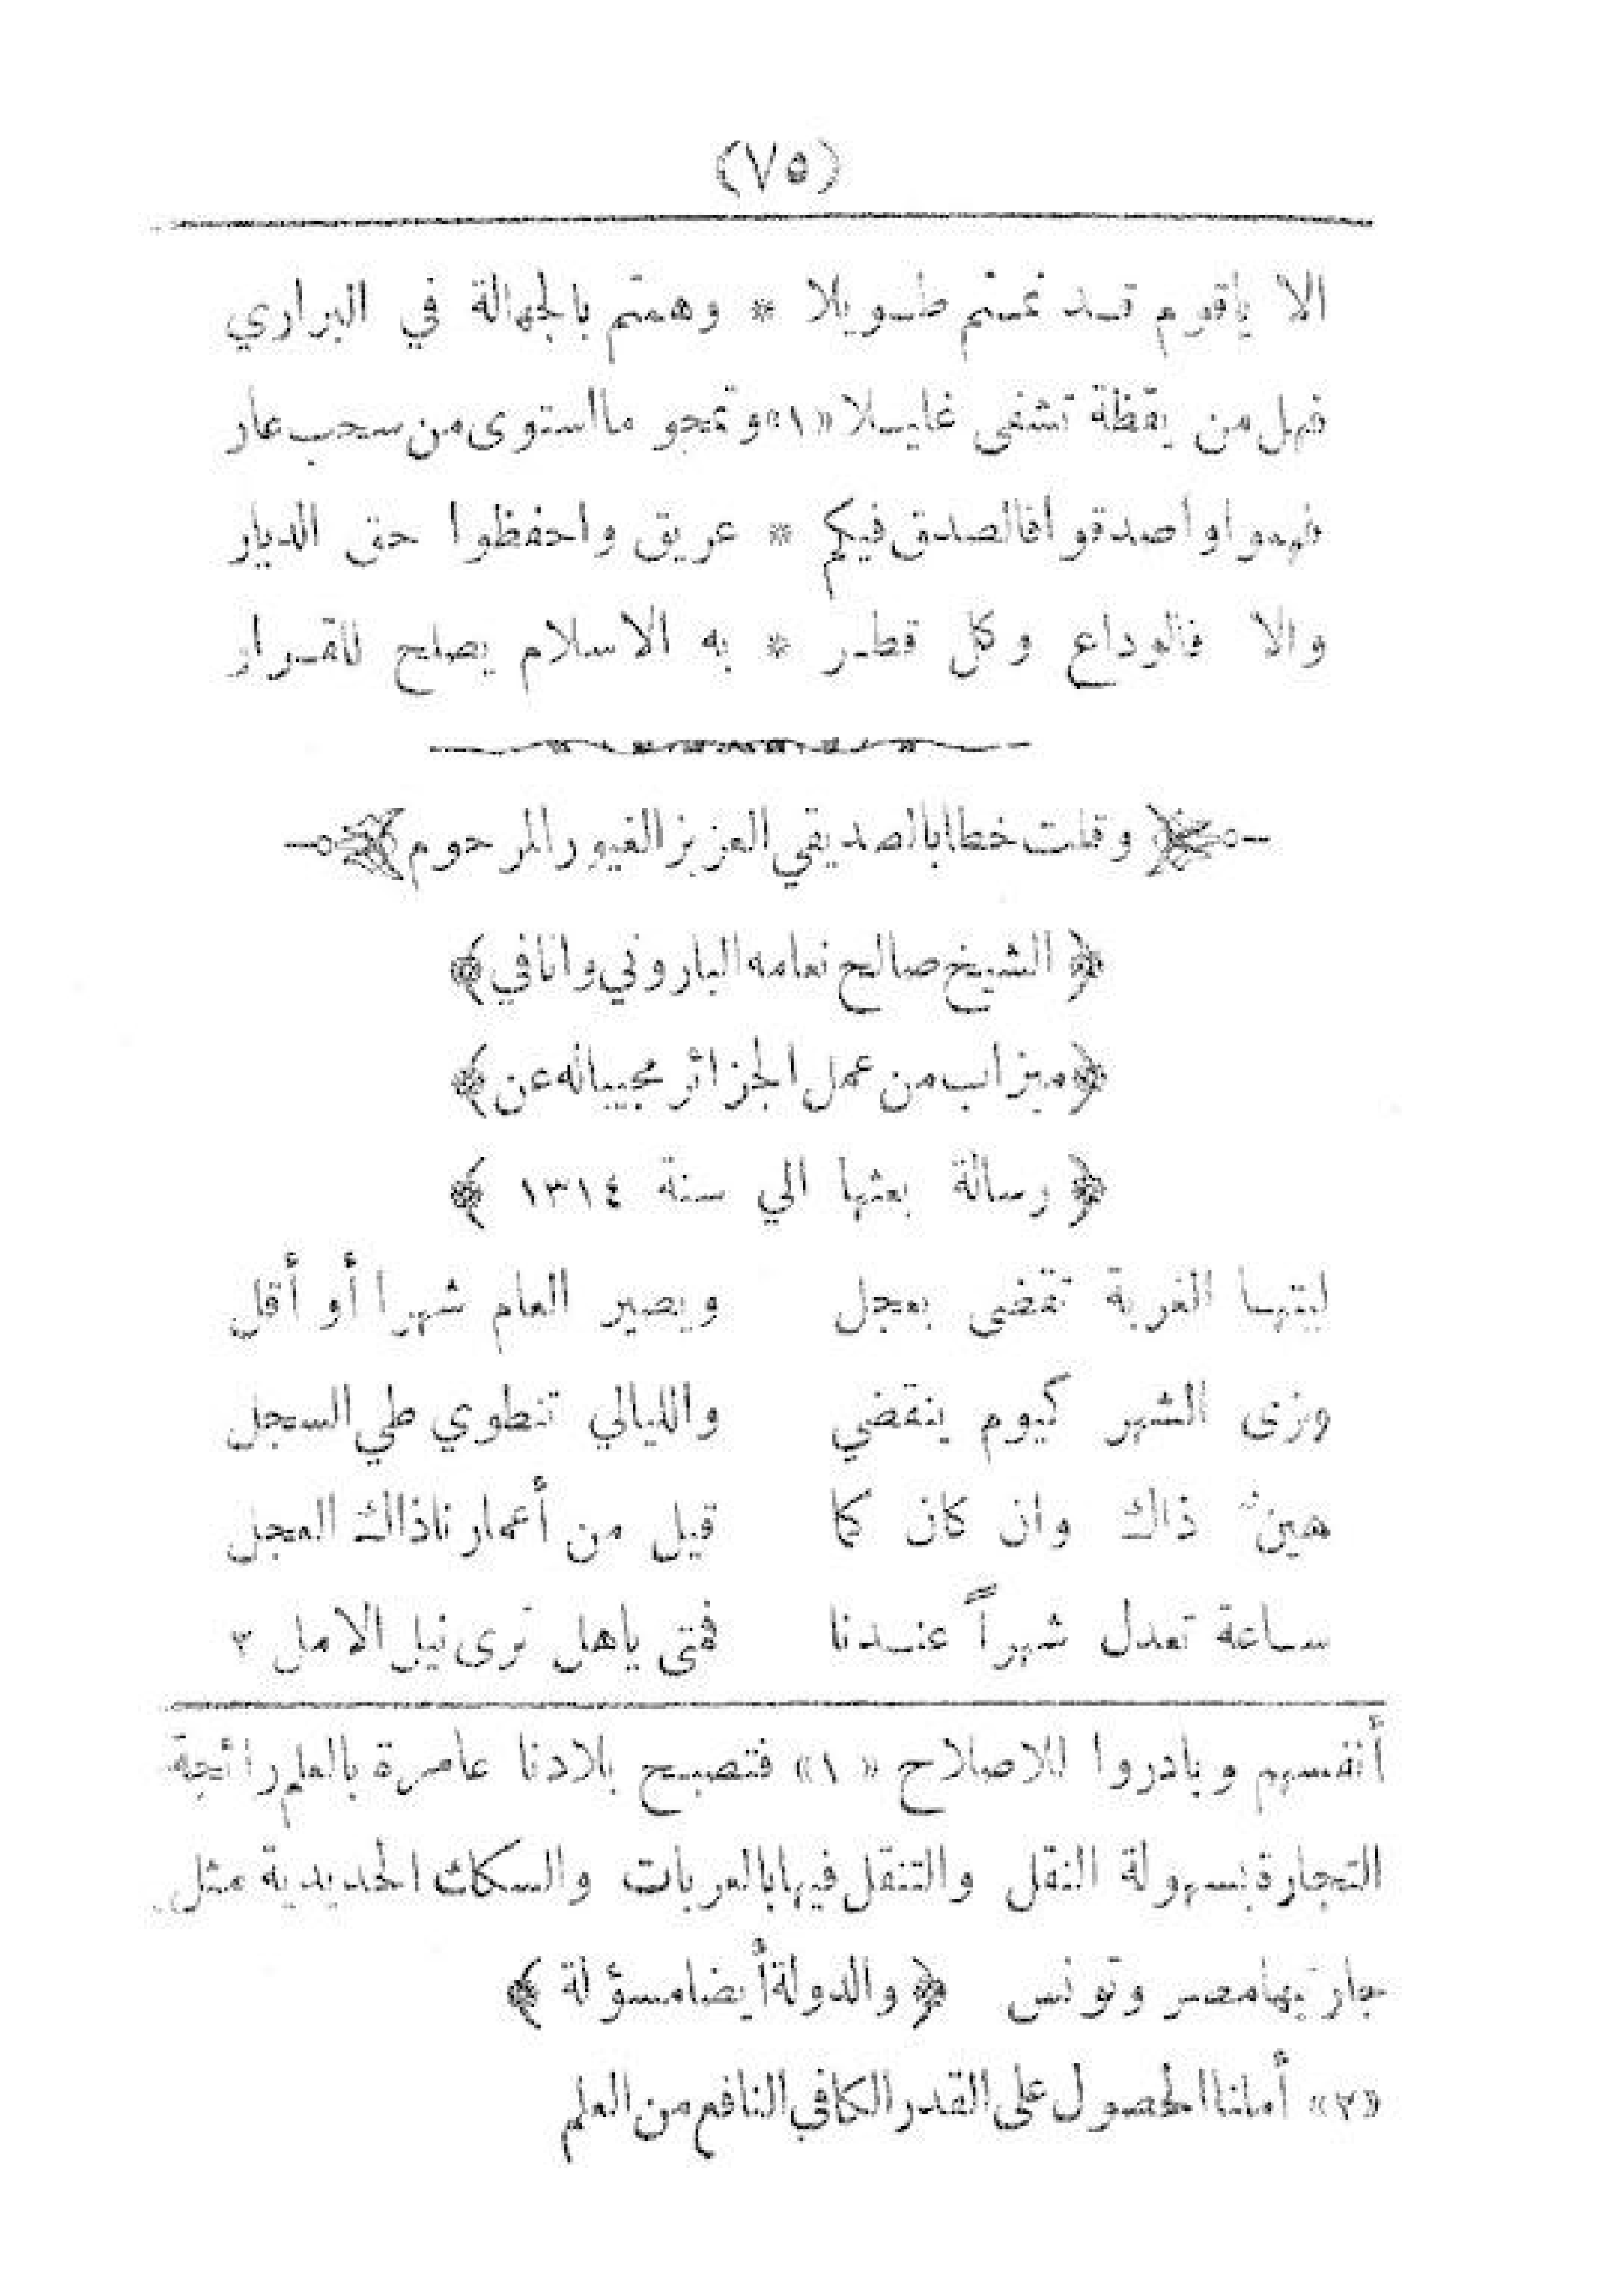 (٧٥)
الا ياقوم قد نمتم طويلا * وهمتم بالجهالة في البراري
فهل من يقظة تشفى غليلا «١» وتمحو ما استوى من سحب عار
فهبوا واصدقوا فالصدق فيكم * عريق واحفظوا حق الديار
والا فالوداع وكل قطر * به الاسلام يصلح للقرار
وقلت خطابا لصديقي العزيز الغيور المرحوم
﴿ الشيخ صالح نعامه الباروني وانا في ﴾
﴿ ميزاب من عمل الجزائر مجيبا له عن ﴾
﴿ رسالة بعثها الي سنة ١٣١٤ ﴾
ليتها الغربة تقضى بعجل ويصير العام شهرا أو أقل
ونرى الشهر كيوم ينقضي والليالي تنطوي طي السجل
هينٌ ذاك وان كان كما قيل من أعمارنا ذاك العجل
ساعة تعدل شهراً عندنا فمتى ياهل ترى نيل الامل ٢
أنفسهم وبادروا للاصلاح «١» فتصبح بلادنا عامرة بالعلم رائجة
التجارة بسهولة النقل والتنقل فيها بالعربات والسكك الحديدية مثل
جارتيها مصر وتونس ﴿ والدولة أيضا مسؤلة ﴾
«٢» أملنا الحصول على القدر الكافي النافع من العلم